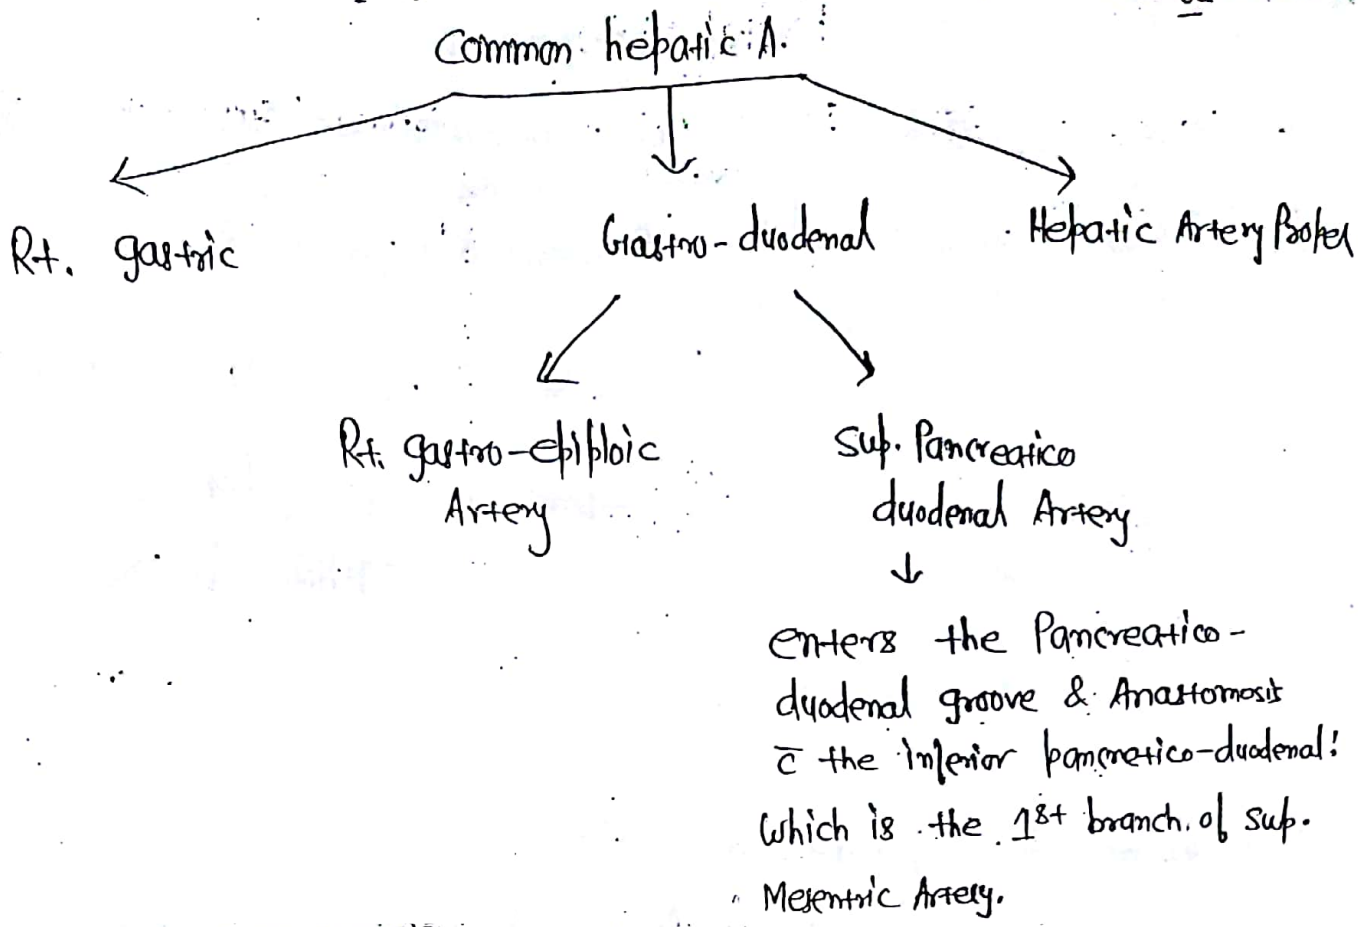 Common hepatic A.
Rt. gastric
Gastro-duodenal
Hepatic Artery Proper
Rt. gastro-epiploic
Artery
Sup. Pancreatico
duodenal Artery
↓
enters the Pancreatico-
duodenal groove & Anastomosis
c̄ the inferior pancreatico-duodenal!
Which is the 1st branch. of sup.
Mesentric Artery.